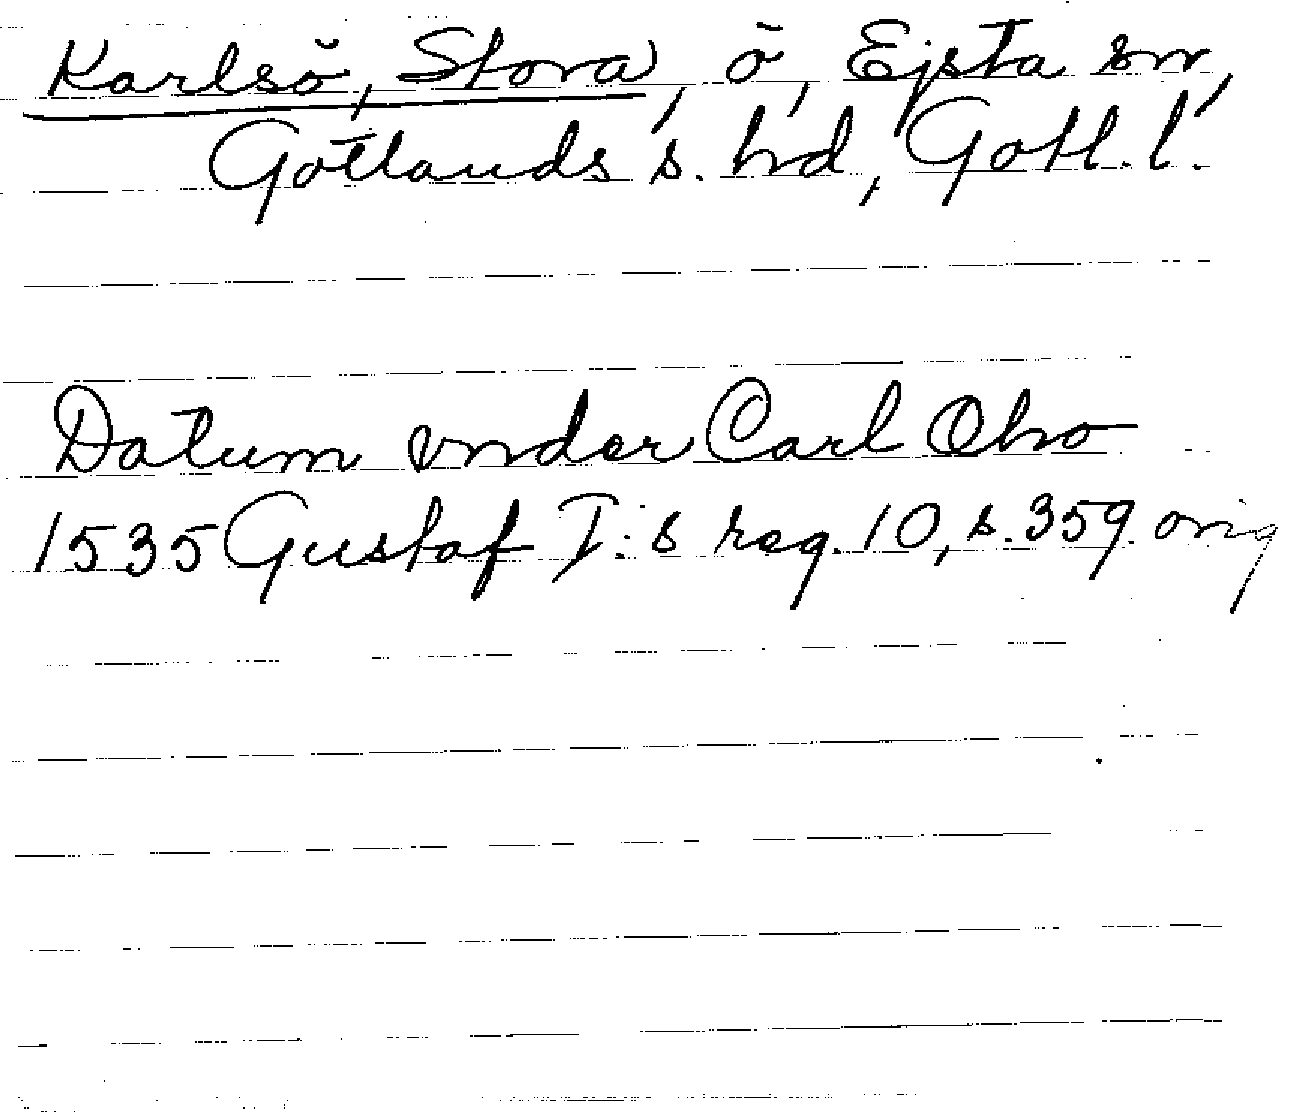 Karlsö, Stora, ö, Ejsta sn,
Gotlands s. hd, Gotl. l.
Datum vnder Carl Øho
1535 Gustaf I:s reg. 10, s. 359 orig